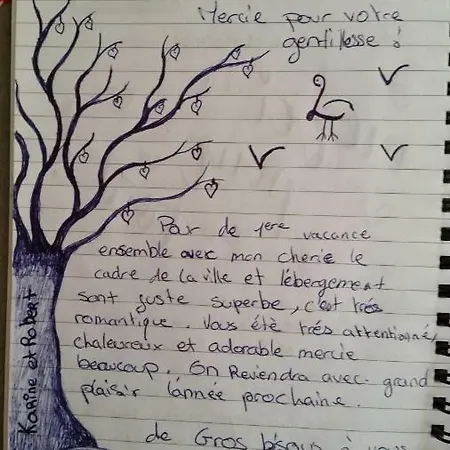 Mercie pour votre
gentillesse !
Par de 1ere vacance
ensemble avec mon cherie le
cadre de la ville et lébergement
sont juste superbe, c'est trés
romantique. Vous étè trés attentionné,
chaleureux et adorable mercie
beaucoup. On Reviendra avec grand
plaisir lánnée prochaine.
de Gros bisous à vous
Karine et Robert